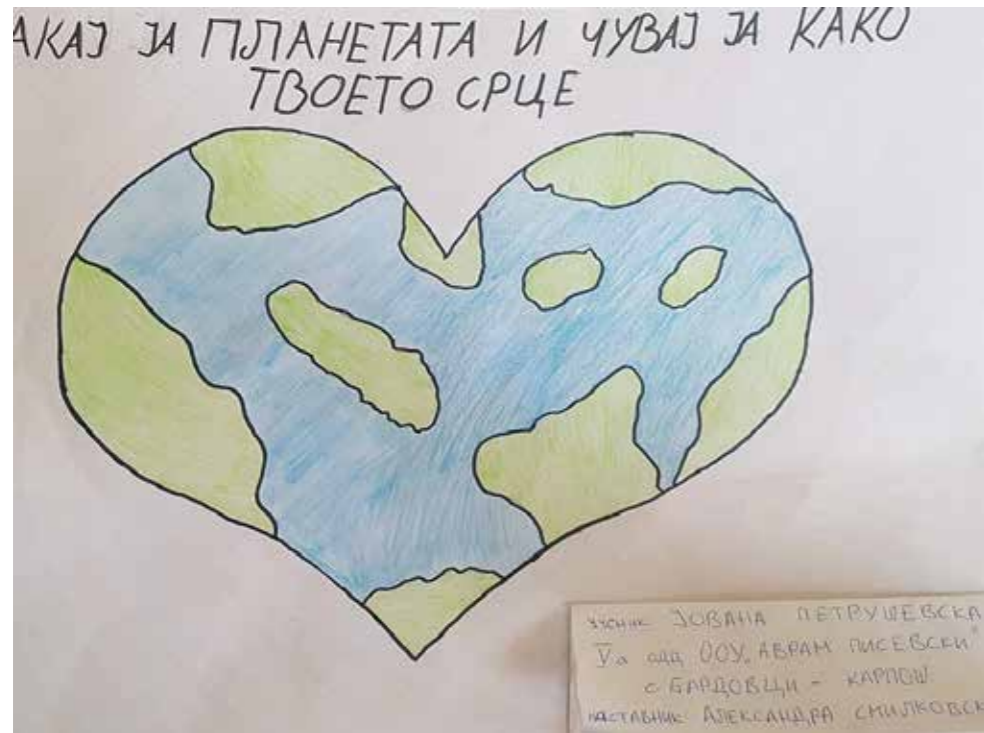 АКАЈ ЈА ПЛАНЕТАТА И ЧУВАЈ ЈА КАКО
ТВОЕТО СРЦЕ
ученик ЈОВАНА ПЕТРУШЕВСКА
V а одд ООУ„АВРАМ ПИСЕВСКИ"
с БАРДОВЦИ - КАРПОШ
наставник АЛЕКСАНДРА СМИЛКОВСК